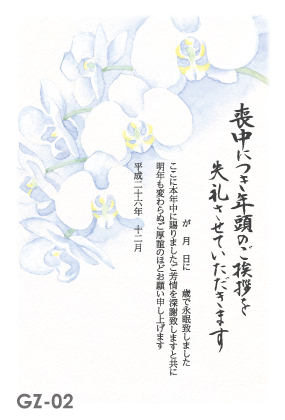 喪中につき年頭のご挨拶を
失礼させていただきます
が 月 日に 歳で永眠致しました
ここに本年中に賜りましたご芳情を深謝致しますと共に
明年も変わらぬご厚誼のほどお願い申し上げます
平成二十六年 十二月
GZ-02